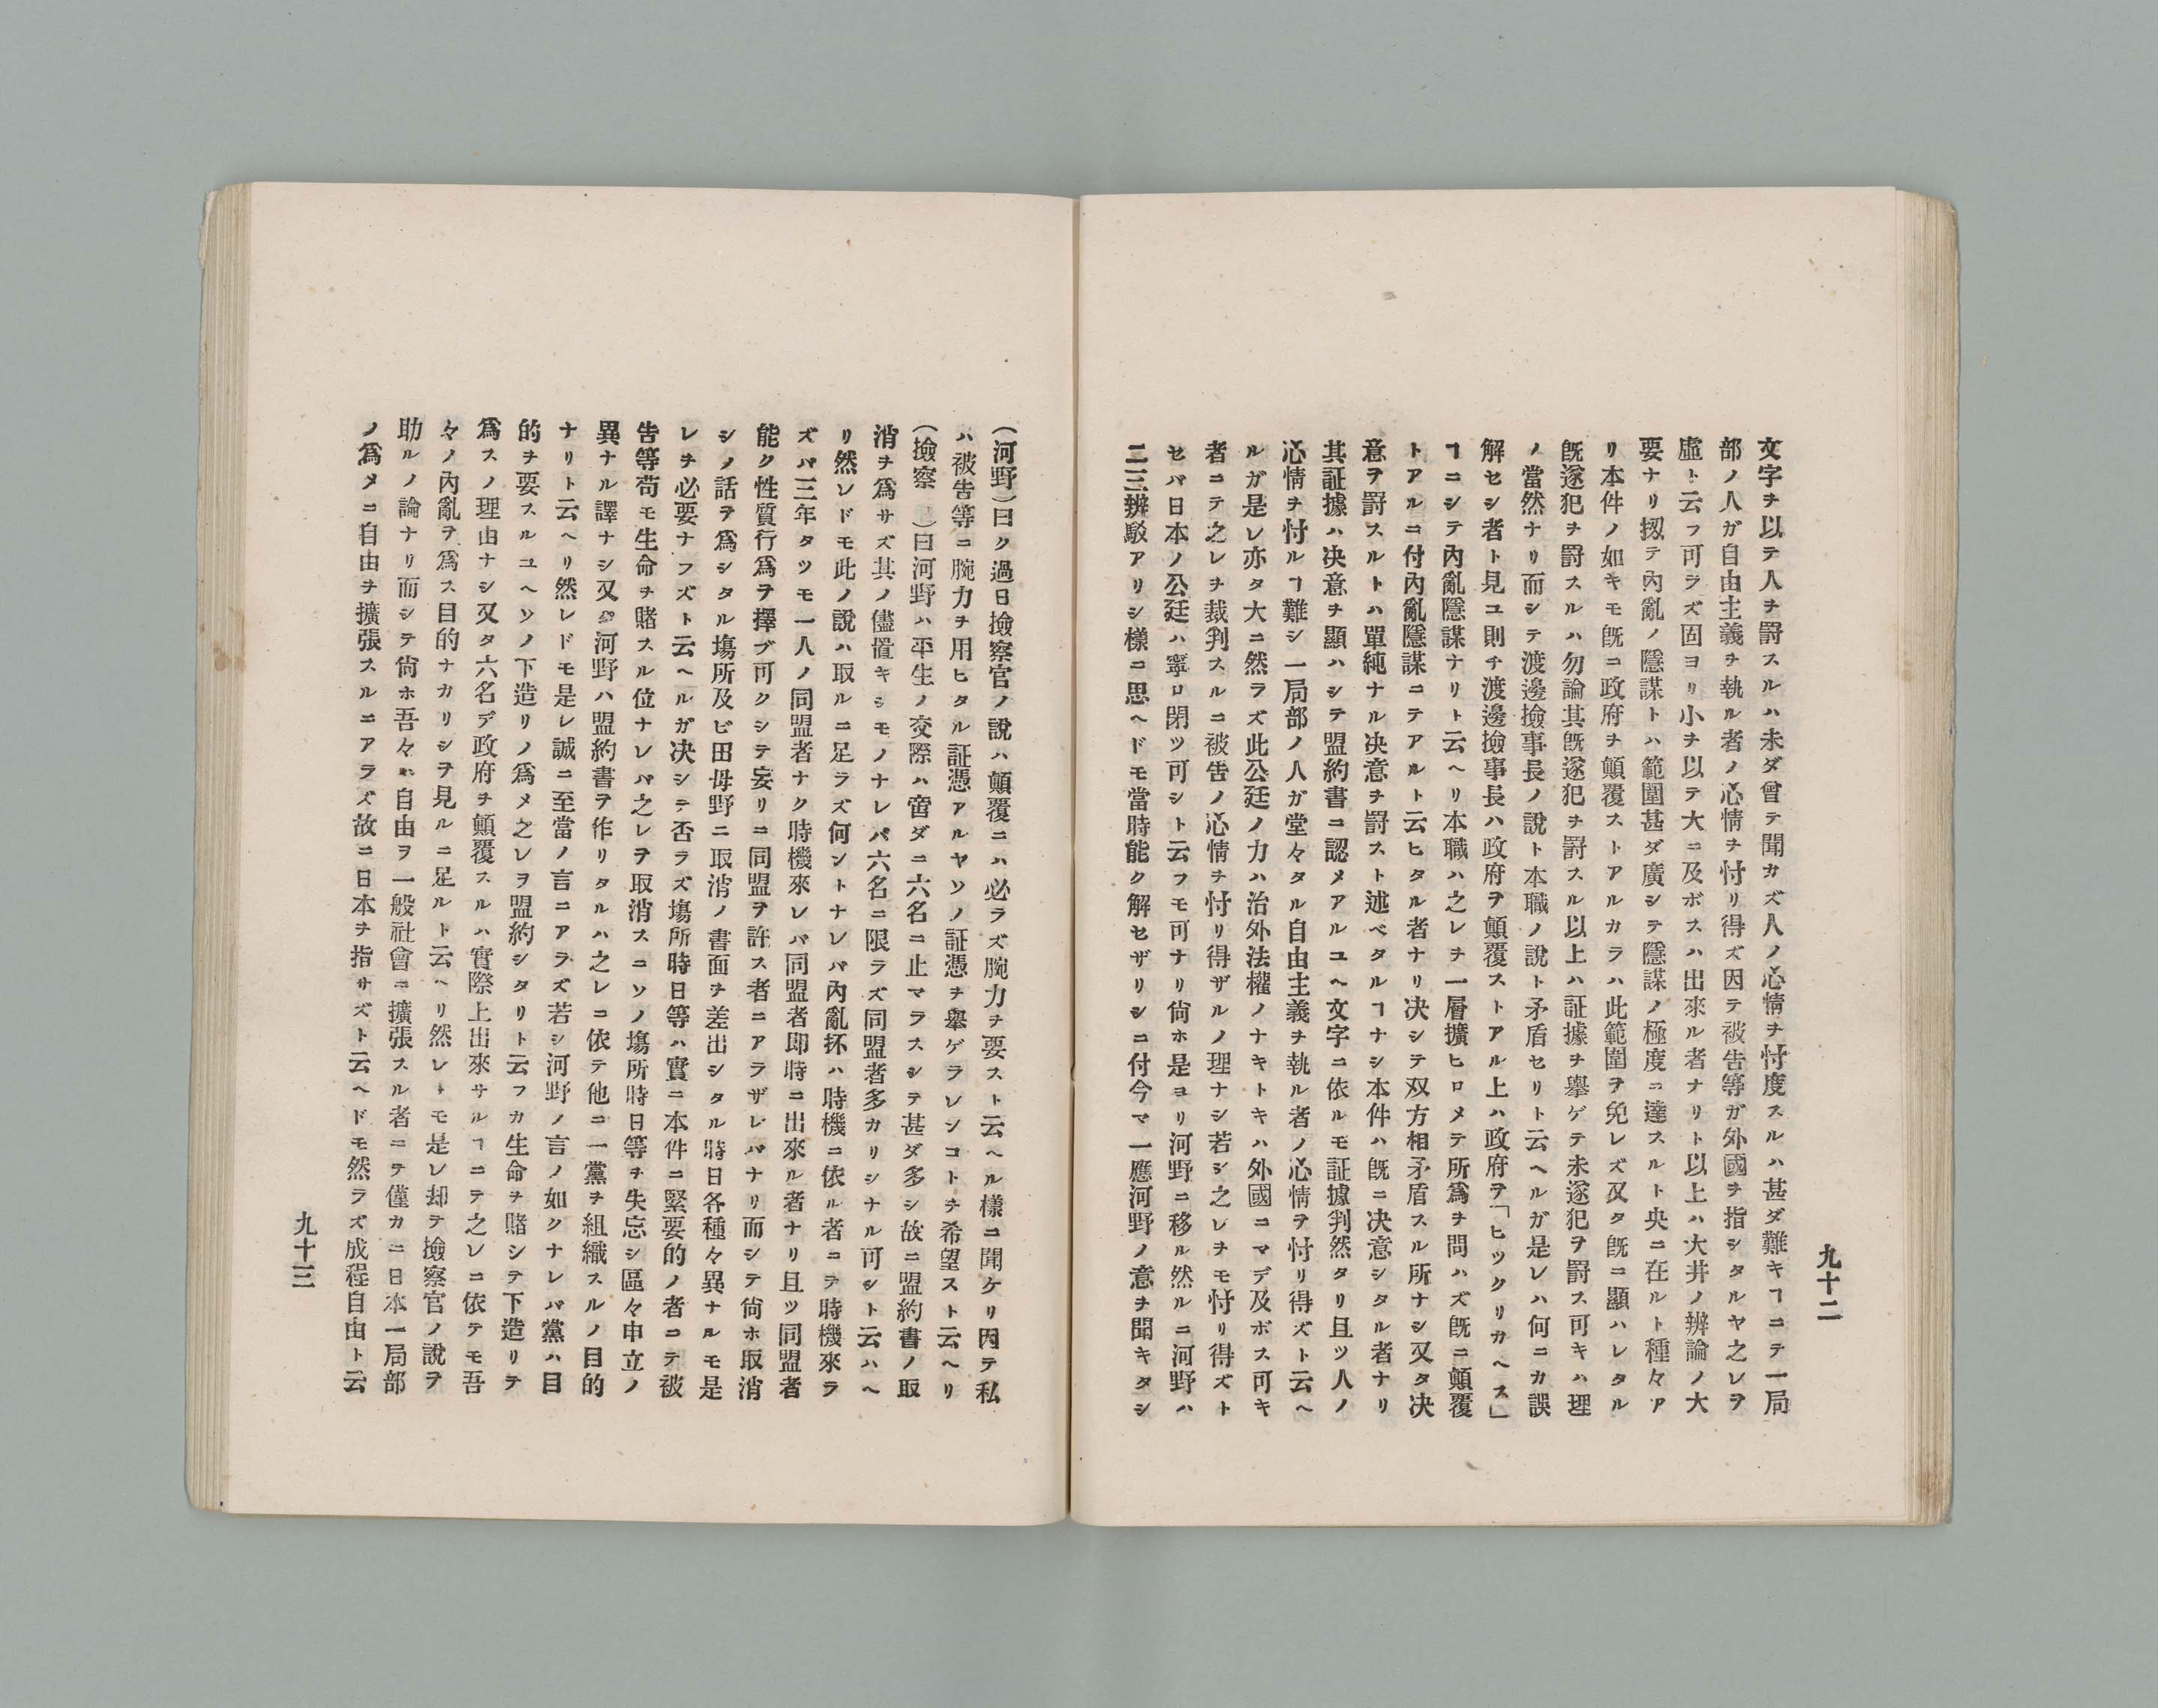 九十二
文字ヲ以テ人ヲ罸スルハ未ダ曾テ聞カズ人ノ心情ヲ忖度スルハ甚ダ難キヿニテ一局
部ノ人ガ自由主義ヲ執ル者ノ心情ヲ忖リ得ズ因テ被告等ガ外國ヲ指シタルヤ之レヲ
虛ト云フ可ラズ固ヨリ小ヲ以テ大ニ及ボスハ出來ル者ナリト以上ハ大井ノ辨論ノ大
要ナリ扨テ內亂ノ隱謀トハ範圍甚ダ廣シテ隱謀ノ極度ニ達スルト央ニ在ルト種々ア
リ本件ノ如キモ旣ニ政府ヲ顚覆ストアルカラハ此範圍ヲ免レズ又タ旣ニ顯ハレタル
旣遂犯ヲ罸スルハ勿論其旣遂犯ヲ罸スル以上ハ証據ヲ擧ゲテ未遂犯ヲ罸ス可キハ理
ノ當然ナリ而シテ渡邊撿事長ノ說ト本職ノ說ト矛盾セリト云ヘルガ是レハ何ニカ誤
解セシ者ト見ユ則チ渡邊撿事長ハ政府ヲ顚覆ストアル上ハ政府ヲ「ヒツクリカヘス」
ヿニシテ內亂隱謀ナリト云ヘリ本職ハ之レヲ一層擴ヒロメテ所爲ヲ問ハズ旣ニ顚覆
トアルニ付內亂隱謀ニテアルト云ヒタル者ナリ决シテ双方相矛盾スル所ナシ又タ决
意ヲ罸スルトハ單純ナル决意ヲ罸スト述ベタルヿナシ本件ハ旣ニ决意シタル者ナリ
其証據ハ决意ヲ顯ハシテ盟約書ニ認メアルユヘ文字ニ依ルモ証據判然タリ且ツ人ノ
心情ヲ忖ルヿ難シ一局部ノ人ガ堂々タル自由主義ヲ執ル者ノ心情ヲ忖リ得ズト云ヘ
ルガ是レ亦タ大ニ然ラズ此公廷ノ力ハ治外法權ノナキトキハ外國ニマデ及ボス可キ
者ニテ之レヲ裁判スルニ被告ノ心情ヲ忖リ得ザルノ理ナシ若シ之レヲモ忖リ得ズト
セバ日本ノ公廷ハ寧ロ閉ツ可シト云フモ可ナリ尙ホ是ヨリ河野ニ移ル然ルニ河野ハ
二三辨駁アリシ樣ニ思ヘドモ當時能ク解セザリシニ付今マ一應河野ノ意ヲ聞キタシ
(河野)曰ク過日撿察官ノ說ハ顚覆ニハ必ラズ腕力ヲ要スト云ヘル樣ニ聞ケリ因テ私
ハ被告等ニ腕力ヲ用ヒタル証憑アルヤソノ証憑ヲ擧ゲラレンコトヲ希望スト云ヘリ
(撿察)曰河野ハ平生ノ交際ハ啻ダニ六名ニ止マラスシテ甚ダ多シ故ニ盟約書ノ取
消ヲ爲サズ其ノ儘置キシモノナレバ六名ニ限ラズ同盟者多カリシナル可シト云ハヘ
リ然レドモ此ノ說ハ取ルニ足ラズ何ントナレバ內亂抔ハ時機ニ依ル者ニテ時機來ラ
ズバ三年タツモ一人ノ同盟者ナク時機來レバ同盟者卽時ニ出來ル者ナリ且ツ同盟者
能ク性質行爲ヲ擇ブ可クシテ妄リニ同盟ヲ許ス者ニアラザレバナリ而シテ尙ホ取消
シノ話ヲ爲シタル塲所及ビ田母野ニ取消ノ書面ヲ差出シタル時日各種々異ナルモ是
レヲ必要ナフズト云ヘルガ决シテ否ラズ塲所時日等ハ實ニ本件ニ緊要的ノ者ニテ被
告等苟モ生命ヲ賭スル位ナレバ之レヲ取消スニソノ塲所時日等ヲ失忘シ區々申立ノ
異ナル譯ナシ又河野ハ盟約書ヲ作リタルハ之レニ依テ他ニ一黨ヲ組織スルノ目的
ナリト云ヘリ然レドモ是レ誠ニ至當ノ言ニアラズ若シ河野ノ言ノ如クナレバ黨ハ目
的ヲ要スルユヘソノ下造リノ爲メ之レヲ盟約シタリト云フカ生命ヲ賭シテ下造リテ
爲スノ理由ナシ又タ六名デ政府ヲ顚覆スルハ實際上出來サルヿニテ之レニ依テモ吾
々ノ內亂ヲ爲ス目的ナカリシヲ見ルニ足ルト云ヘリ然レトモ是レ却テ撿察官ノ說ヲ
助ルノ論ナリ而シテ尙ホ吾々ハ自由ヲ一般社會ニ擴張スル者ニテ僅カニ日本一局部
ノ爲メニ自由ヲ擴張スルニアラズ故ニ日本ヲ指サズト云ヘドモ然ラズ成程自由ト云
九十三